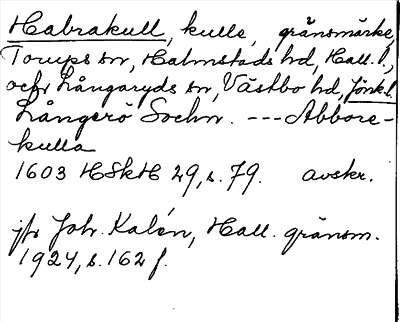 Habrakull, kulle, gränsmärke,
Torups sn, Halmstads hd, Hall. l.,
och Långaryds sn, Västbo hd, Jönk.l.
Långerö Sochn. --- Abbore-
kulla
1603 HSkH 29, s. 79. avskr.
jfr Joh. Kalén, Hall. gränsm.
1924, s. 162 f.